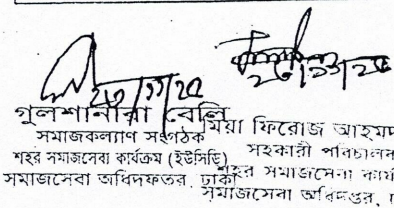 গুলশানারা বেলি
সমাজকল্যাণ সংগঠক
শহর সমাজসেবা কার্যক্রম (ইউসিডি)
সমাজসেবা অধিদফতর, ঢাকা
মিয়া ফিরোজ আহমদ
সহকারী পরিচালক
শহর সমাজসেবা কার্য
সমাজসেবা অধিদপ্তর,